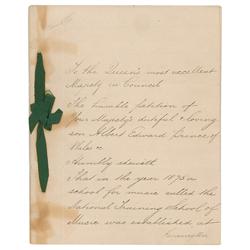 To the Queen's most excellent
Majesty in Council
The humble petition of
Your Majesty's dutiful & loving
son Albert Edward Prince of
Wales &
Humbly sheweth
That in the year 1873 a
school for music called the
National Training School of
Music was established at